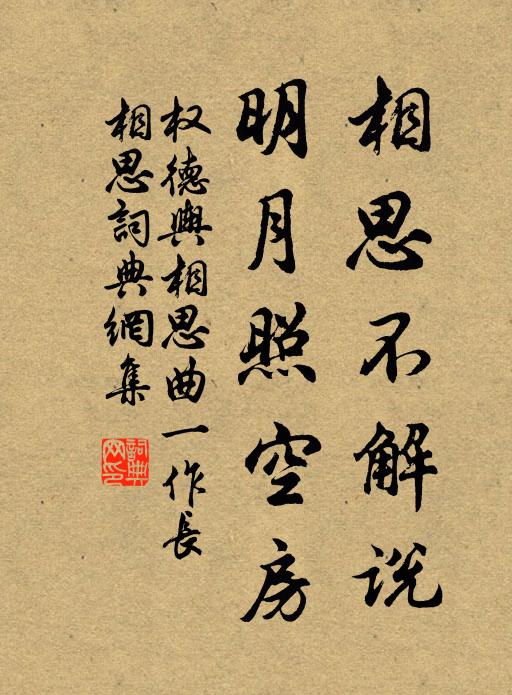 相思不解说
明月照空房
权德舆相思曲一作長
相思詞典網集
詞典网印